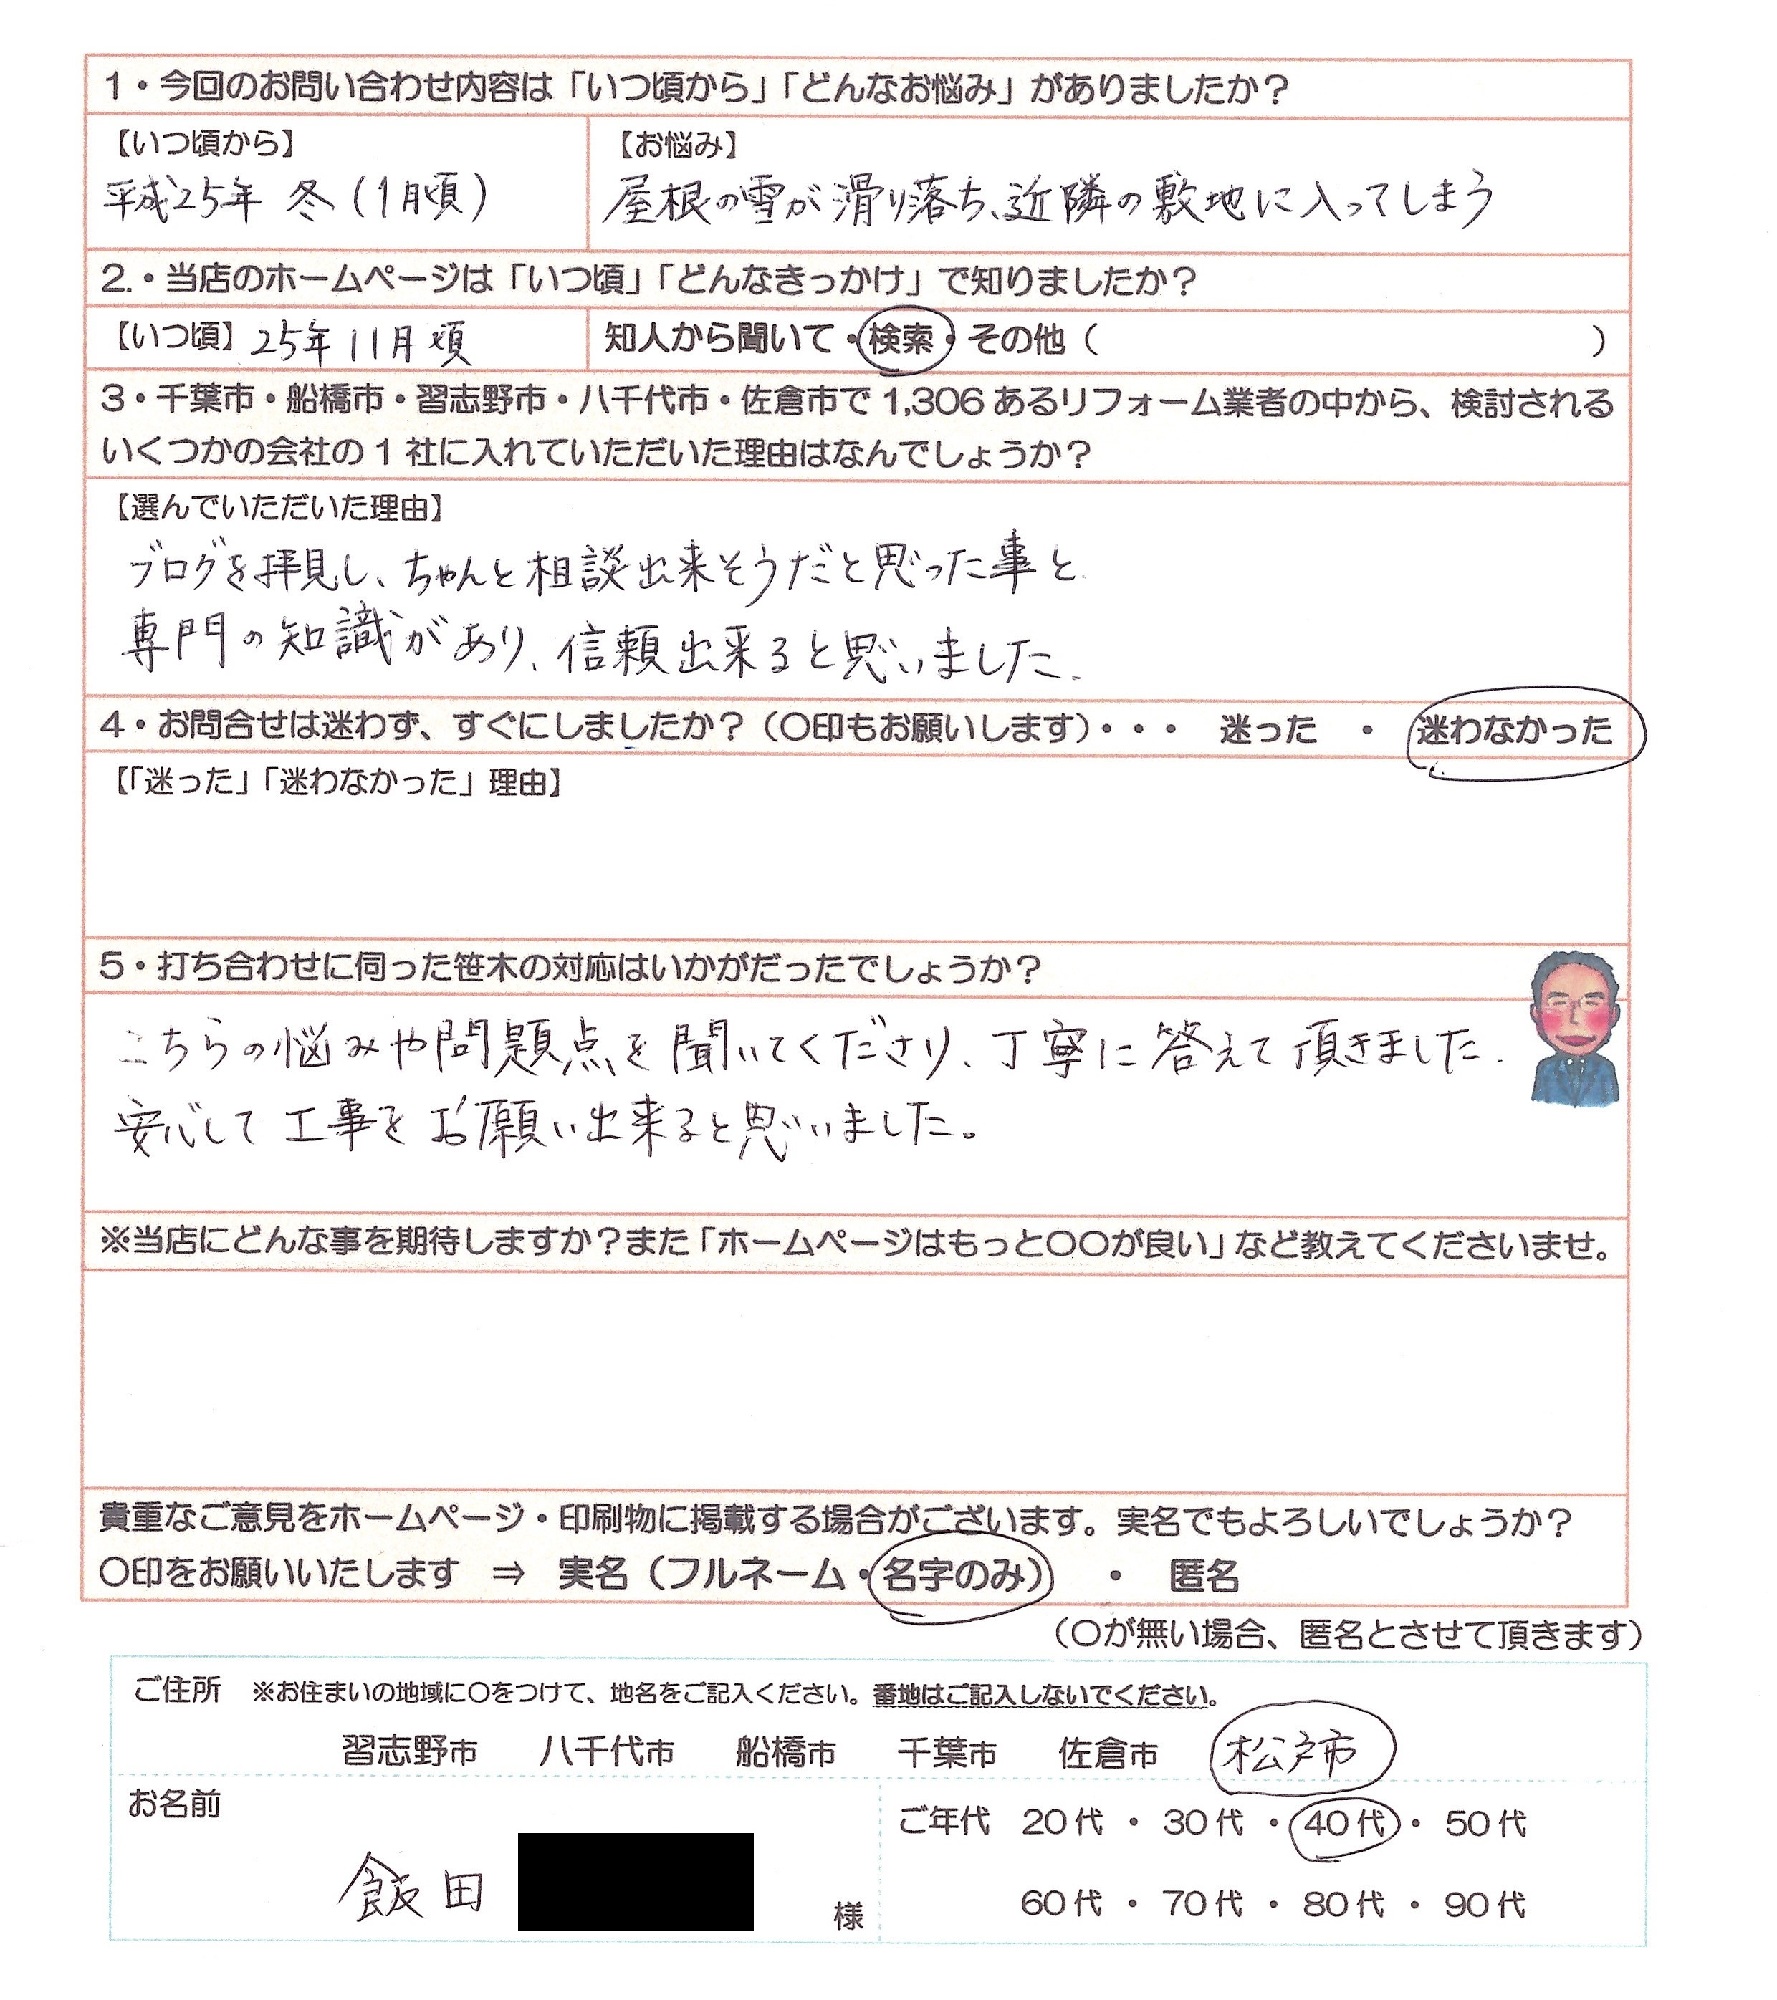 1・今回のお問い合わせ内容は「いつ頃から」「どんなお悩み」がありましたか？
【いつ頃から】
平成25年 冬（1月頃）
【お悩み】
屋根の雪が滑り落ち、近隣の敷地に入ってしまう
2.・当店のホームページは「いつ頃」「どんなきっかけ」で知りましたか？
【いつ頃】25年11月頃
知人から聞いて・検索・その他（　　　）
3・千葉市・船橋市・習志野市・八千代市・佐倉市で1,306あるリフォーム業者の中から、検討される
いくつかの会社の1社に入れていただいた理由はなんでしょうか？
【選んでいただいた理由】
ブログを拝見し、ちゃんと相談出来そうだと思った事と
専門の知識があり、信頼出来ると思いました.
4・お問合せは迷わず、すぐにしましたか？（〇印もお願いします）・・・　迷った　・　迷わなかった
【「迷った」「迷わなかった」理由】
5・打ち合わせに伺った笹木の対応はいかがだったでしょうか？
こちらの悩みや問題点を聞いてくださり、丁寧に答えて頂きました.
安心して工事をお願い出来ると思いました。
※当店にどんな事を期待しますか？また「ホームページはもっと〇〇が良い」など教えてくださいませ。
貴重なご意見をホームページ・印刷物に掲載する場合がございます。実名でもよろしいでしょうか？
〇印をお願いいたします　⇒　実名（フルネーム・名字のみ）　・　匿名
（〇が無い場合、匿名とさせて頂きます）
ご住所　※お住まいの地域に〇をつけて、地名をご記入ください。番地はご記入しないでください。
習志野市　八千代市　船橋市　千葉市　佐倉市　松戸市
お名前
飯田　様
ご年代　20代・30代・40代・50代
60代・70代・80代・90代